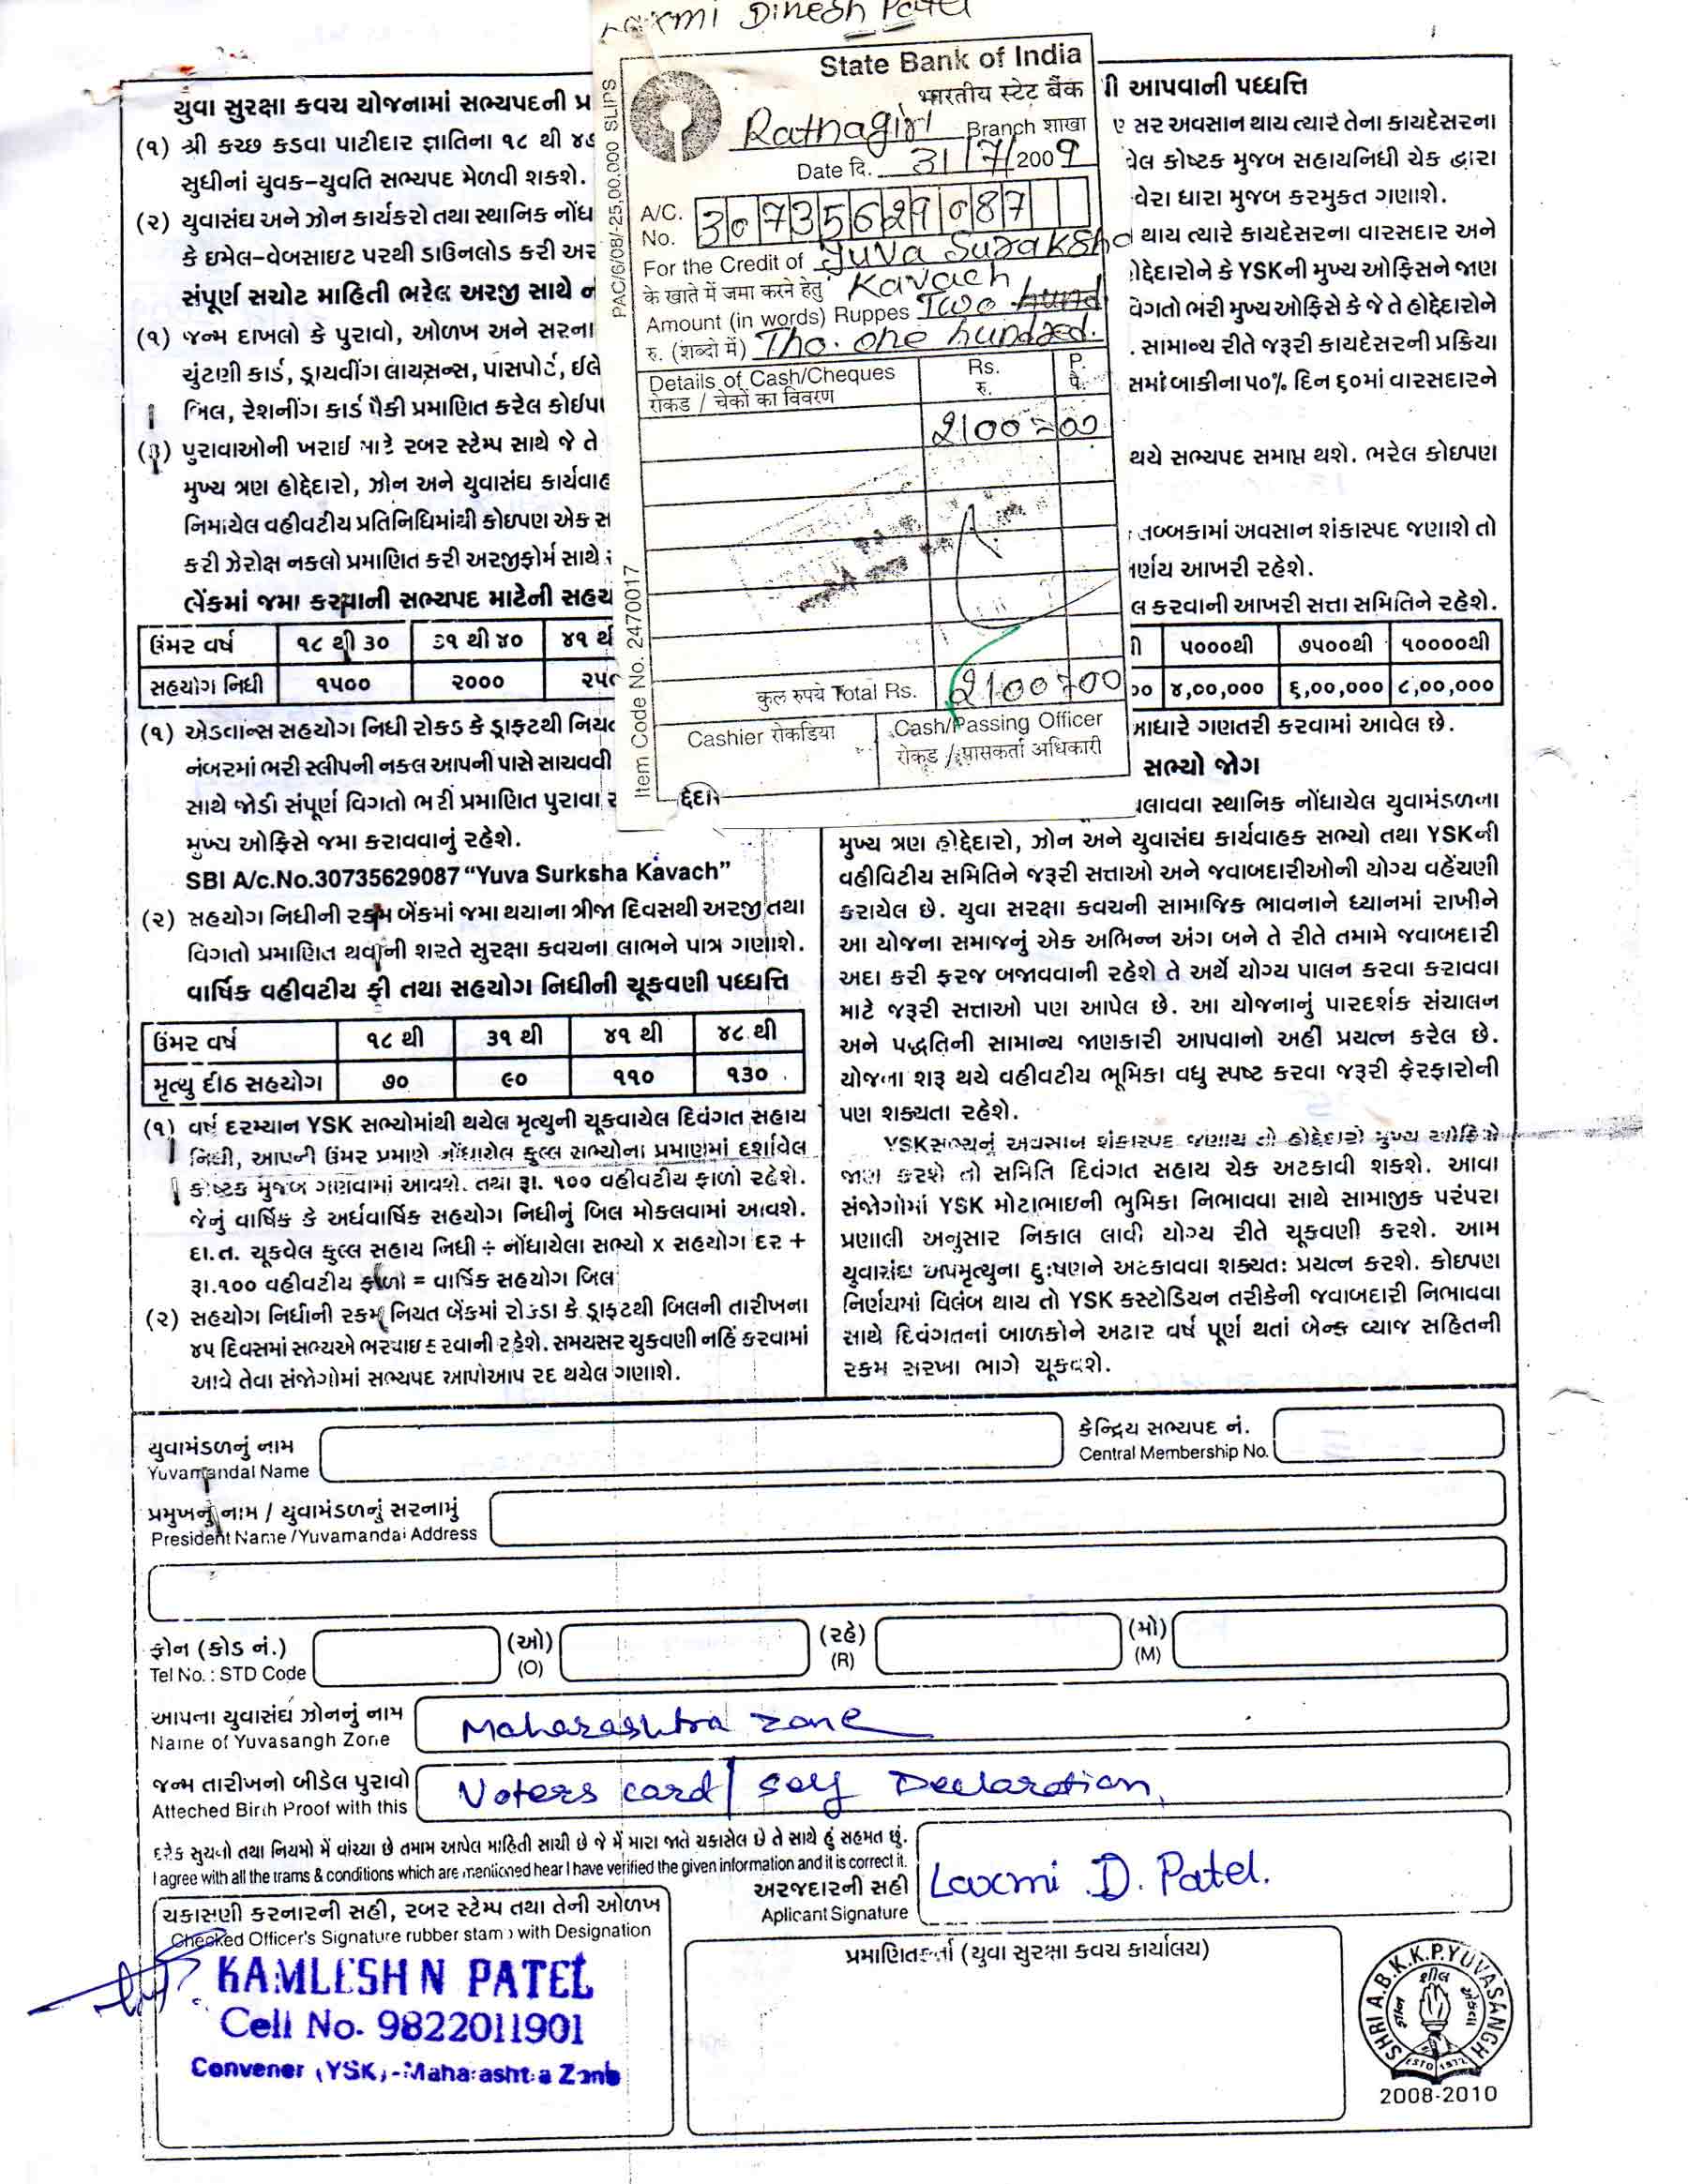 Laxmi Dinesh Patel
State Bank of India
भारतीय स्टेट बैंक
Ratnagiri Branch शाखा
Date दि. 31/7/2009
A/C. No. 30735629087
For the Credit of Yuva Suraksha
के खाते में जमा करने हेतु Kavach
Amount (in words) Ruppes Two hund
रु. (शब्दो में) Tho. one hundred.
Details of Cash/Cheques Rs. P.
रोकड / चेकों का विवरण रु. पै.
2100=00
कुल रुपये Total Rs. 2100=00
Cashier रोकडिया Cash/Passing Officer
रोकड / पासकर्ता अधिकारी
PAC/6/08/-25,00,000 SLIPS
Item Code No. 2470017
યુવા સુરક્ષા કવચ યોજનામાં સભ્યપદની પ્ર
(૧) શ્રી કચ્છ કડવા પાટીદાર જ્ઞાતિના ૧૮ થી ૪૯
સુધીનાં યુવક-યુવતિ સભ્યપદ મેળવી શકશે.
(૨) યુવાસંઘ અને ઝોન કાર્યકરો તથા સ્થાનિક નોંધ
કે ઇમેલ-વેબસાઇટ પરથી ડાઉનલોડ કરી અર
સંપૂર્ણ સચોટ માહિતી ભરેલ અરજી સાથે ન
(૧) જન્મ દાખલો કે પુરાવો, ઓળખ અને સરના
ચુંટણી કાર્ડ, ડ્રાયવીંગ લાયસન્સ, પાસપોર્ટ, ઈલે
બિલ, રેશનીંગ કાર્ડ પૈકી પ્રમાણિત કરેલ કોઈપ
(૨) પુરાવાઓની ખરાઇ માટે રબર સ્ટેમ્પ સાથે જે તે
મુખ્ય ત્રણ હોદ્દેદારો, ઝોન અને યુવાસંઘ કાર્યવાહ
નિમાયેલ વહીવટીય પ્રતિનિધિમાંથી કોઇપણ એક સ
કરી ઝેરોક્ષ નકલો પ્રમાણિત કરી અરજીફોર્મ સાથે
બેંકમાં જમા કરવાની સભ્યપદ માટેની સહય
ઉંમર વર્ષ ૧૮ થી ૩૦ ૩૧ થી ૪૦ ૪૧ થ
સહયોગ નિધી ૧૫૦૦ ૨૦૦૦ ૨૫૦
(૧) એડવાન્સ સહયોગ નિધી રોકડ કે ડ્રાફટથી નિયત
નંબરમાં ભરી સ્લીપની નકલ આપની પાસે સાચવવી
સાથે જોડી સંપૂર્ણ વિગતો ભરી પ્રમાણિત પુરાવા સ
મુખ્ય ઓફિસે જમા કરાવવાનું રહેશે.
SBI A/c.No.30735629087 “Yuva Surksha Kavach”
(૨) સહયોગ નિધીની રકમ બેંકમાં જમા થયાના ત્રીજા દિવસથી અરજી તથા
વિગતો પ્રમાણિત થવાની શરતે સુરક્ષા કવચના લાભને પાત્ર ગણાશે.
વાર્ષિક વહીવટીય ફી તથા સહયોગ નિધીની ચૂકવણી પધ્ધત્તિ
ઉંમર વર્ષ ૧૮ થી ૩૧ થી ૪૧ થી ૪૮ થી
મૃત્યુ દીઠ સહયોગ ૭૦ ૯૦ ૧૧૦ ૧૩૦
(૧) વર્ષ દરમ્યાન YSK સભ્યોમાંથી થયેલ મૃત્યુની ચૂકવાયેલ દિવંગત સહાય
નિધી, આપની ઉંમર પ્રમાણે નોંધાયેલ કુલ્લ સભ્યોના પ્રમાણમાં દર્શાવેલ
કોષ્ટક મુજબ ગણવામાં આવશે. તથા રૂા. ૧૦૦ વહીવટીય ફાળો રહેશે.
જેનું વાર્ષિક કે અર્ધવાર્ષિક સહયોગ નિધીનું બિલ મોકલવામાં આવશે.
દા.ત. ચૂકવેલ કુલ્લ સહાય નિધી ÷ નોંધાયેલા સભ્યો x સહયોગ દર +
રૂા.૧૦૦ વહીવટીય ફાળો = વાર્ષિક સહયોગ બિલ
(૨) સહયોગ નિધીની રકમ નિયત બેંકમાં રોકડા કે ડ્રાફટથી બિલની તારીખના
૪૫ દિવસમાં સભ્યએ ભરપાઇ કરવાની રહેશે. સમયસર ચુકવણી નહિં કરવામાં
આવે તેવા સંજોગોમાં સભ્યપદ આપોઆપ રદ થયેલ ગણાશે.
ી આપવાની પધ્ધત્તિ
સર અવસાન થાય ત્યારે તેના કાયદેસરના
વેલ કોષ્ટક મુજબ સહાયનિધી ચેક દ્વારા
વેરા ધારા મુજબ કરમુક્ત ગણાશે.
થાય ત્યારે કાયદેસરના વારસદાર અને
ોદ્દેદારોને કે YSKની મુખ્ય ઓફિસને જાણ
વિગતો ભરી મુખ્ય ઓફિસે કે જે તે હોદ્દેદારોને
. સામાન્ય રીતે જરૂરી કાયદેસરની પ્રક્રિયા
સમાં બાકીના ૫૦% દિન ૬૦માં વારસદારને
થયે સભ્યપદ સમાપ્ત થશે. ભરેલ કોઇપણ
તબ્બકામાં અવસાન શંકાસ્પદ જણાશે તો
ર્ણય આખરી રહેશે.
લ કરવાની આખરી સત્તા સમિતિને રહેશે.
ી ૫૦૦૦થી ૭૫૦૦થી ૧૦૦૦૦થી
૦૦ ૪,૦૦,૦૦૦ ૬,૦૦,૦૦૦ ૮,૦૦,૦૦૦
આધારે ગણતરી કરવામાં આવેલ છે.
સભ્યો જોગ
ચલાવવા સ્થાનિક નોંધાયેલ યુવામંડળના
મુખ્ય ત્રણ હોદ્દેદારો, ઝોન અને યુવાસંઘ કાર્યવાહક સભ્યો તથા YSKની
વહીવિટીય સમિતિને જરૂરી સત્તાઓ અને જવાબદારીઓની યોગ્ય વહેંચણી
કરાયેલ છે. યુવા સરક્ષા કવચની સામાજિક ભાવનાને ધ્યાનમાં રાખીને
આ યોજના સમાજનું એક અભિન્ન અંગ બને તે રીતે તમામે જવાબદારી
અદા કરી ફરજ બજાવવાની રહેશે તે અર્થે યોગ્ય પાલન કરવા કરાવવા
માટે જરૂરી સત્તાઓ પણ આપેલ છે. આ યોજનાનું પારદર્શક સંચાલન
અને પદ્ધતિની સામાન્ય જાણકારી આપવાનો અહીં પ્રયત્ન કરેલ છે.
યોજના શરૂ થયે વહીવટીય ભૂમિકા વધુ સ્પષ્ટ કરવા જરૂરી ફેરફારોની
પણ શક્યતા રહેશે.
YSKસભ્યનું અવસાન શંકાસ્પદ જણાય તો હોદ્દેદારો મુખ્ય ઓફિસે
જાણ કરશે તો સમિતિ દિવંગત સહાય ચેક અટકાવી શકશે. આવા
સંજોગોમાં YSK મોટાભાઇની ભુમિકા નિભાવવા સાથે સામાજીક પરંપરા
પ્રણાલી અનુસાર નિકાલ લાવી યોગ્ય રીતે ચૂકવણી કરશે. આમ
યુવાસંઘ અપમૃત્યુના દુઃષણને અટકાવવા શક્યતઃ પ્રયત્ન કરશે. કોઇપણ
નિર્ણયમાં વિલંબ થાય તો YSK કસ્ટોડિયન તરીકેની જવાબદારી નિભાવવા
સાથે દિવંગતનાં બાળકોને અઢાર વર્ષ પૂર્ણ થતાં બેન્ક વ્યાજ સહિતની
રકમ સરખા ભાગે ચૂકવશે.
યુવામંડળનું નામ
Yuvamandal Name
કેન્દ્રિય સભ્યપદ નં.
Central Membership No.
પ્રમુખનું નામ / યુવામંડળનું સરનામું
President Name /Yuvamandal Address
ફોન (કોડ નં.) (ઓ) (રહે) (મો)
Tel No. : STD Code (O) (R) (M)
આપના યુવાસંઘ ઝોનનું નામ
Name of Yuvasangh Zone Maharashtra zone
જન્મ તારીખનો બીડેલ પુરાવો
Atteched Birth Proof with this Voters card / self Declaration
દરેક સુચનો તથા નિયમો મેં વાંચ્યા છે તમામ આપેલ માહિતી સાચી છે જે મેં મારા જાતે ચકાસેલ છે તે સાથે હું સહમત છું.
I agree with all the trams & conditions which are mentioned hear I have verified the given information and it is correct it.
અરજદારની સહી
Aplicant Signature Laxmi D. Patel.
ચકાસણી કરનારની સહી, રબર સ્ટેમ્પ તથા તેની ઓળખ
Checked Officer's Signature rubber stamp with Designation
KAMLESH N PATEL
Cell No. 9822011901
Convener (YSK) - Maharashtra Zone
પ્રમાણિતકર્તા (યુવા સુરક્ષા કવચ કાર્યાલય)
SHRI A.B.K.K.P. YUVASANGH
ESTD 1972
2008-2010